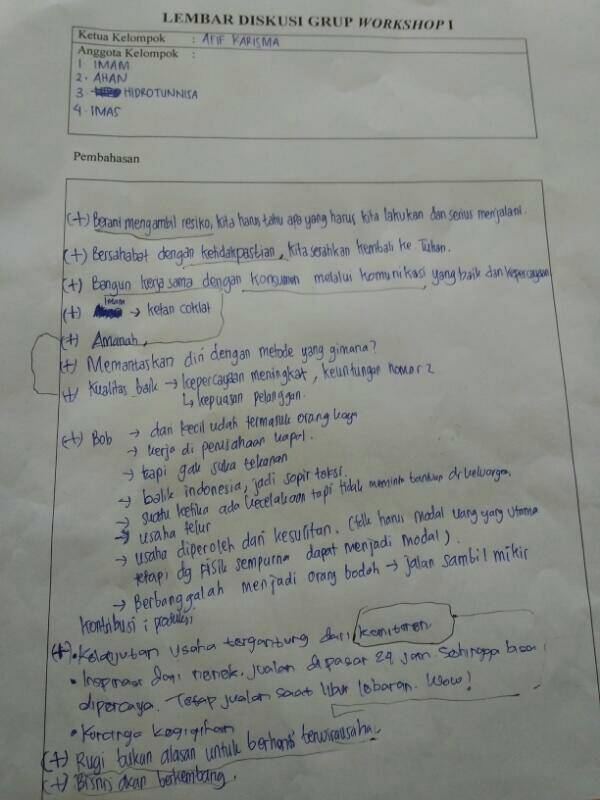 LEMBAR DISKUSI GRUP WORKSHOP I
Ketua Kelompok : AFIF KARISMA
Anggota Kelompok :
1. IMAM
2. AHAN
3. HIDROTUNNISA
4. IMAS
Pembahasan
(+) Berani mengambil resiko, kita harus tahu apa yang harus kita lakukan dan serius menjalani.
(+) Bersahabat dengan ketidakpastian, kita serahkan kembali ke Tuhan.
(+) Bangun kerja sama dengan konsumen melalui komunikasi yang baik dan kepercayaan
(+) Imam → ketan coklat
(+) Amanah,
(+) Memantaskan diri dengan metode yang gimana?
(+) Kualitas baik → kepercayaan meningkat, keuntungan nomor 2
↳ kepuasan pelanggan.
(+) Bob → dari kecil udah termasuk orang kaya
→ kerja di perusahaan kapal.
→ tapi gak suka tekanan
→ balik indonesia, jadi sopir taksi.
→ suatu ketika ada kecelakaan tapi tidak meminta bantuan dr keluarga.
→ usaha telur
→ usaha diperoleh dari kesulitan. (tdk harus modal uang yang utama
tetapi dg fisik sempurna dapat menjadi modal).
→ Berbanggalah menjadi orang bodoh → jalan sambil mikir
kontribusi ; produksi
(+) • Kelanjutan usaha tergantung dari komitmen
• Inspirasi dari nenek, jualan dipasar 24 jam sehingga bisa
dipercaya. Tetap jualan saat libur lebaran. Wow!
• Kurangnya kegigihan
(+) Rugi bukan alasan untuk berhenti berwirausaha.
(+) Bisnis akan berkembang.